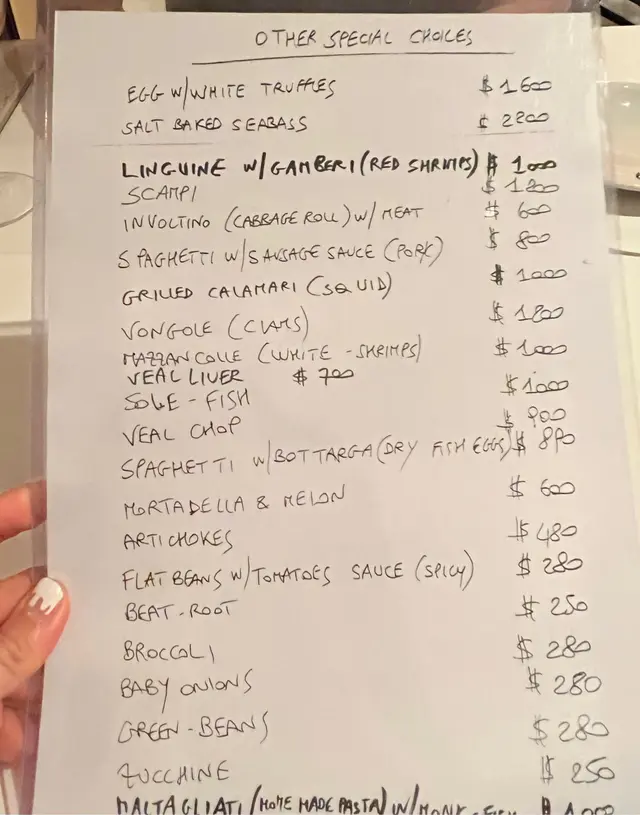 OTHER SPECIAL CHOICES
EGG W/WHITE TRUFFLES $ 1600
SALT BAKED SEABASS $ 2200
LINGUINE W/GAMBERI (RED SHRIMPS) $ 1000
SCAMPI $ 1200
INVOLTINO (CABBAGE ROLL) W/ MEAT $ 600
SPAGHETTI W/SAUSAGE SAUCE (PORK) $ 800
GRILLED CALAMARI (SQUID) $ 1000
VONGOLE (CLAMS) $ 1200
MAZZANCOLLE (WHITE - SHRIMPS) $ 1000
VEAL LIVER $ 700
SOLE - FISH $ 1000
VEAL CHOP $ 900
SPAGHETTI W/BOTTARGA (DRY FISH EGGS) $ 890
MORTADELLA & MELON $ 600
ARTICHOKES $ 480
FLAT BEANS W/TOMATOES SAUCE (SPICY) $ 280
BEAT-ROOT $ 250
BROCCOLI $ 280
BABY ONIONS $ 280
GREEN-BEANS $ 280
ZUCCHINE $ 250
MALTAGLIATI (HOME MADE PASTA) W/MONK-FISH $ 1000